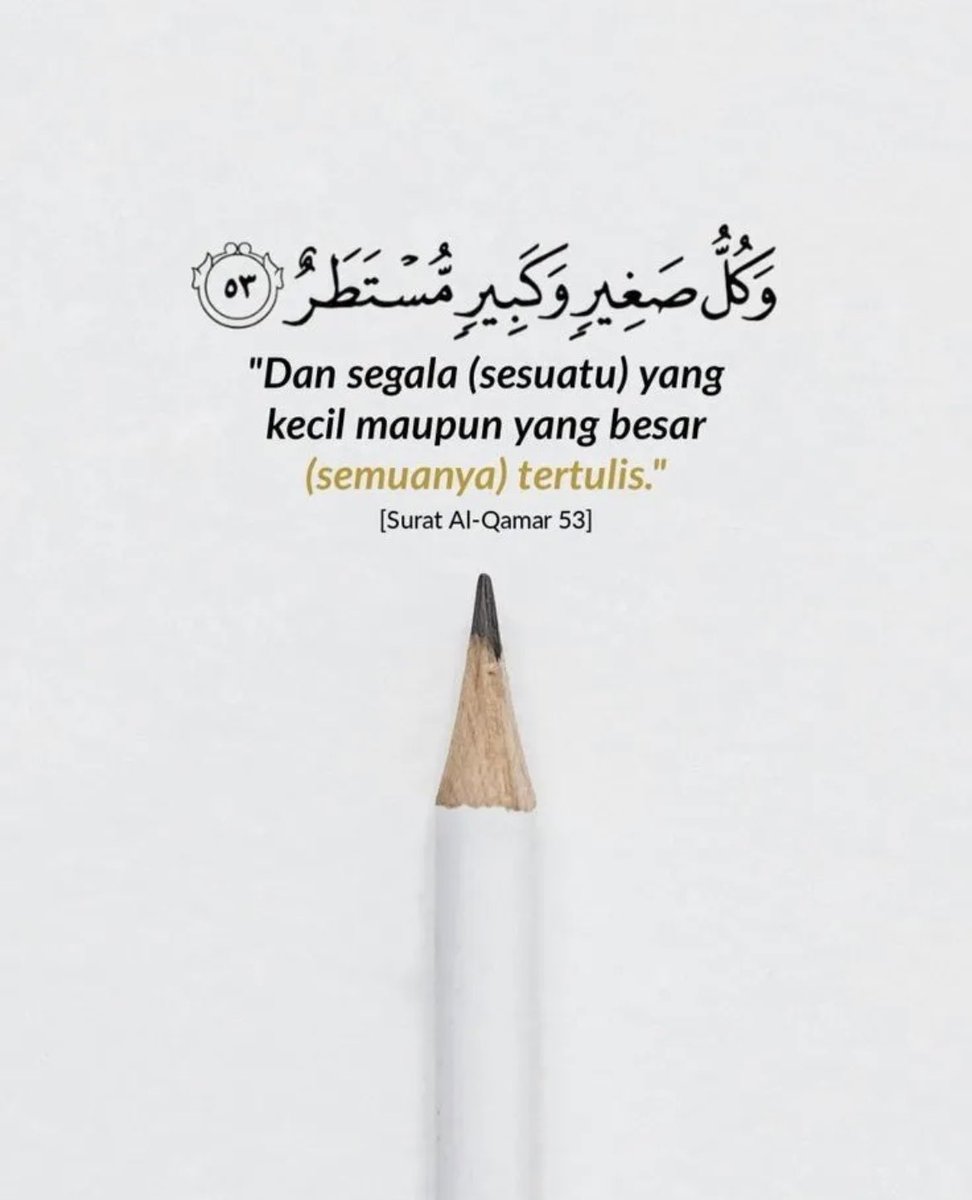 وَكُلُّ صَغِيرٍ وَكَبِيرٍ مُّسْتَطَرٌ ٥٣
"Dan segala (sesuatu) yang
kecil maupun yang besar
(semuanya) tertulis."
[Surat Al-Qamar 53]